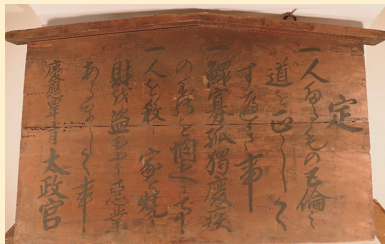 定
一人たるもの五倫之
道を正しく
すへき事
一鰥寡孤獨癈疾
のものを憫むへき事
一人を殺し家を焼き
財を盗む等之惡業
あるましく事
慶應四年三月 太政官